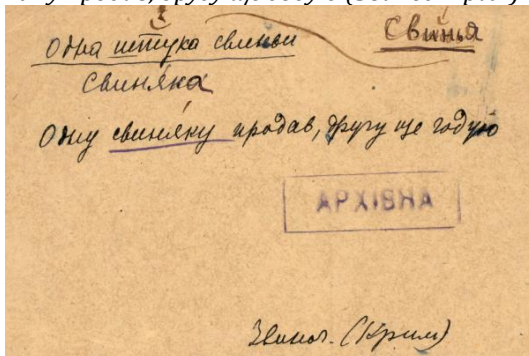 Свинья
Одна штука свиньи
Свиня́ка
Одну свиня́ку продав, другу ще годую
АРХІВНА
Звиног. (Крим)